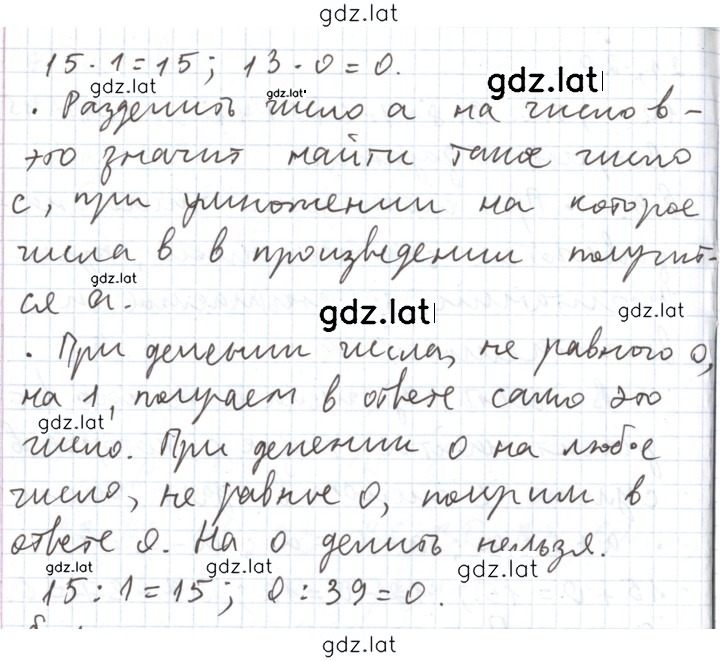 gdz.lat
15 · 1 = 15; 13 · 0 = 0.
gdz.lat gdz.lat gdz.lat
. Разделить число а на число в -
это значит найти такое число
с, при умножении на которое
числа в в произведении получит-
gdz.lat
ся а.
gdz.lat gdz.lat
. При делении числа, не равного 0,
на 1, получаем в ответе само это
gdz.lat
число. При делении 0 на любое
число, не равное 0, получим в
ответе 0. На 0 делить нельзя.
gdz.lat gdz.lat gdz.lat
15 : 1 = 15; 0 : 39 = 0.
gdz.lat